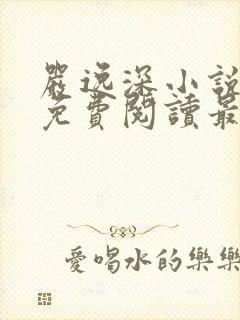 嚴逸深小說
免費閱讀最
愛喝水的樂樂